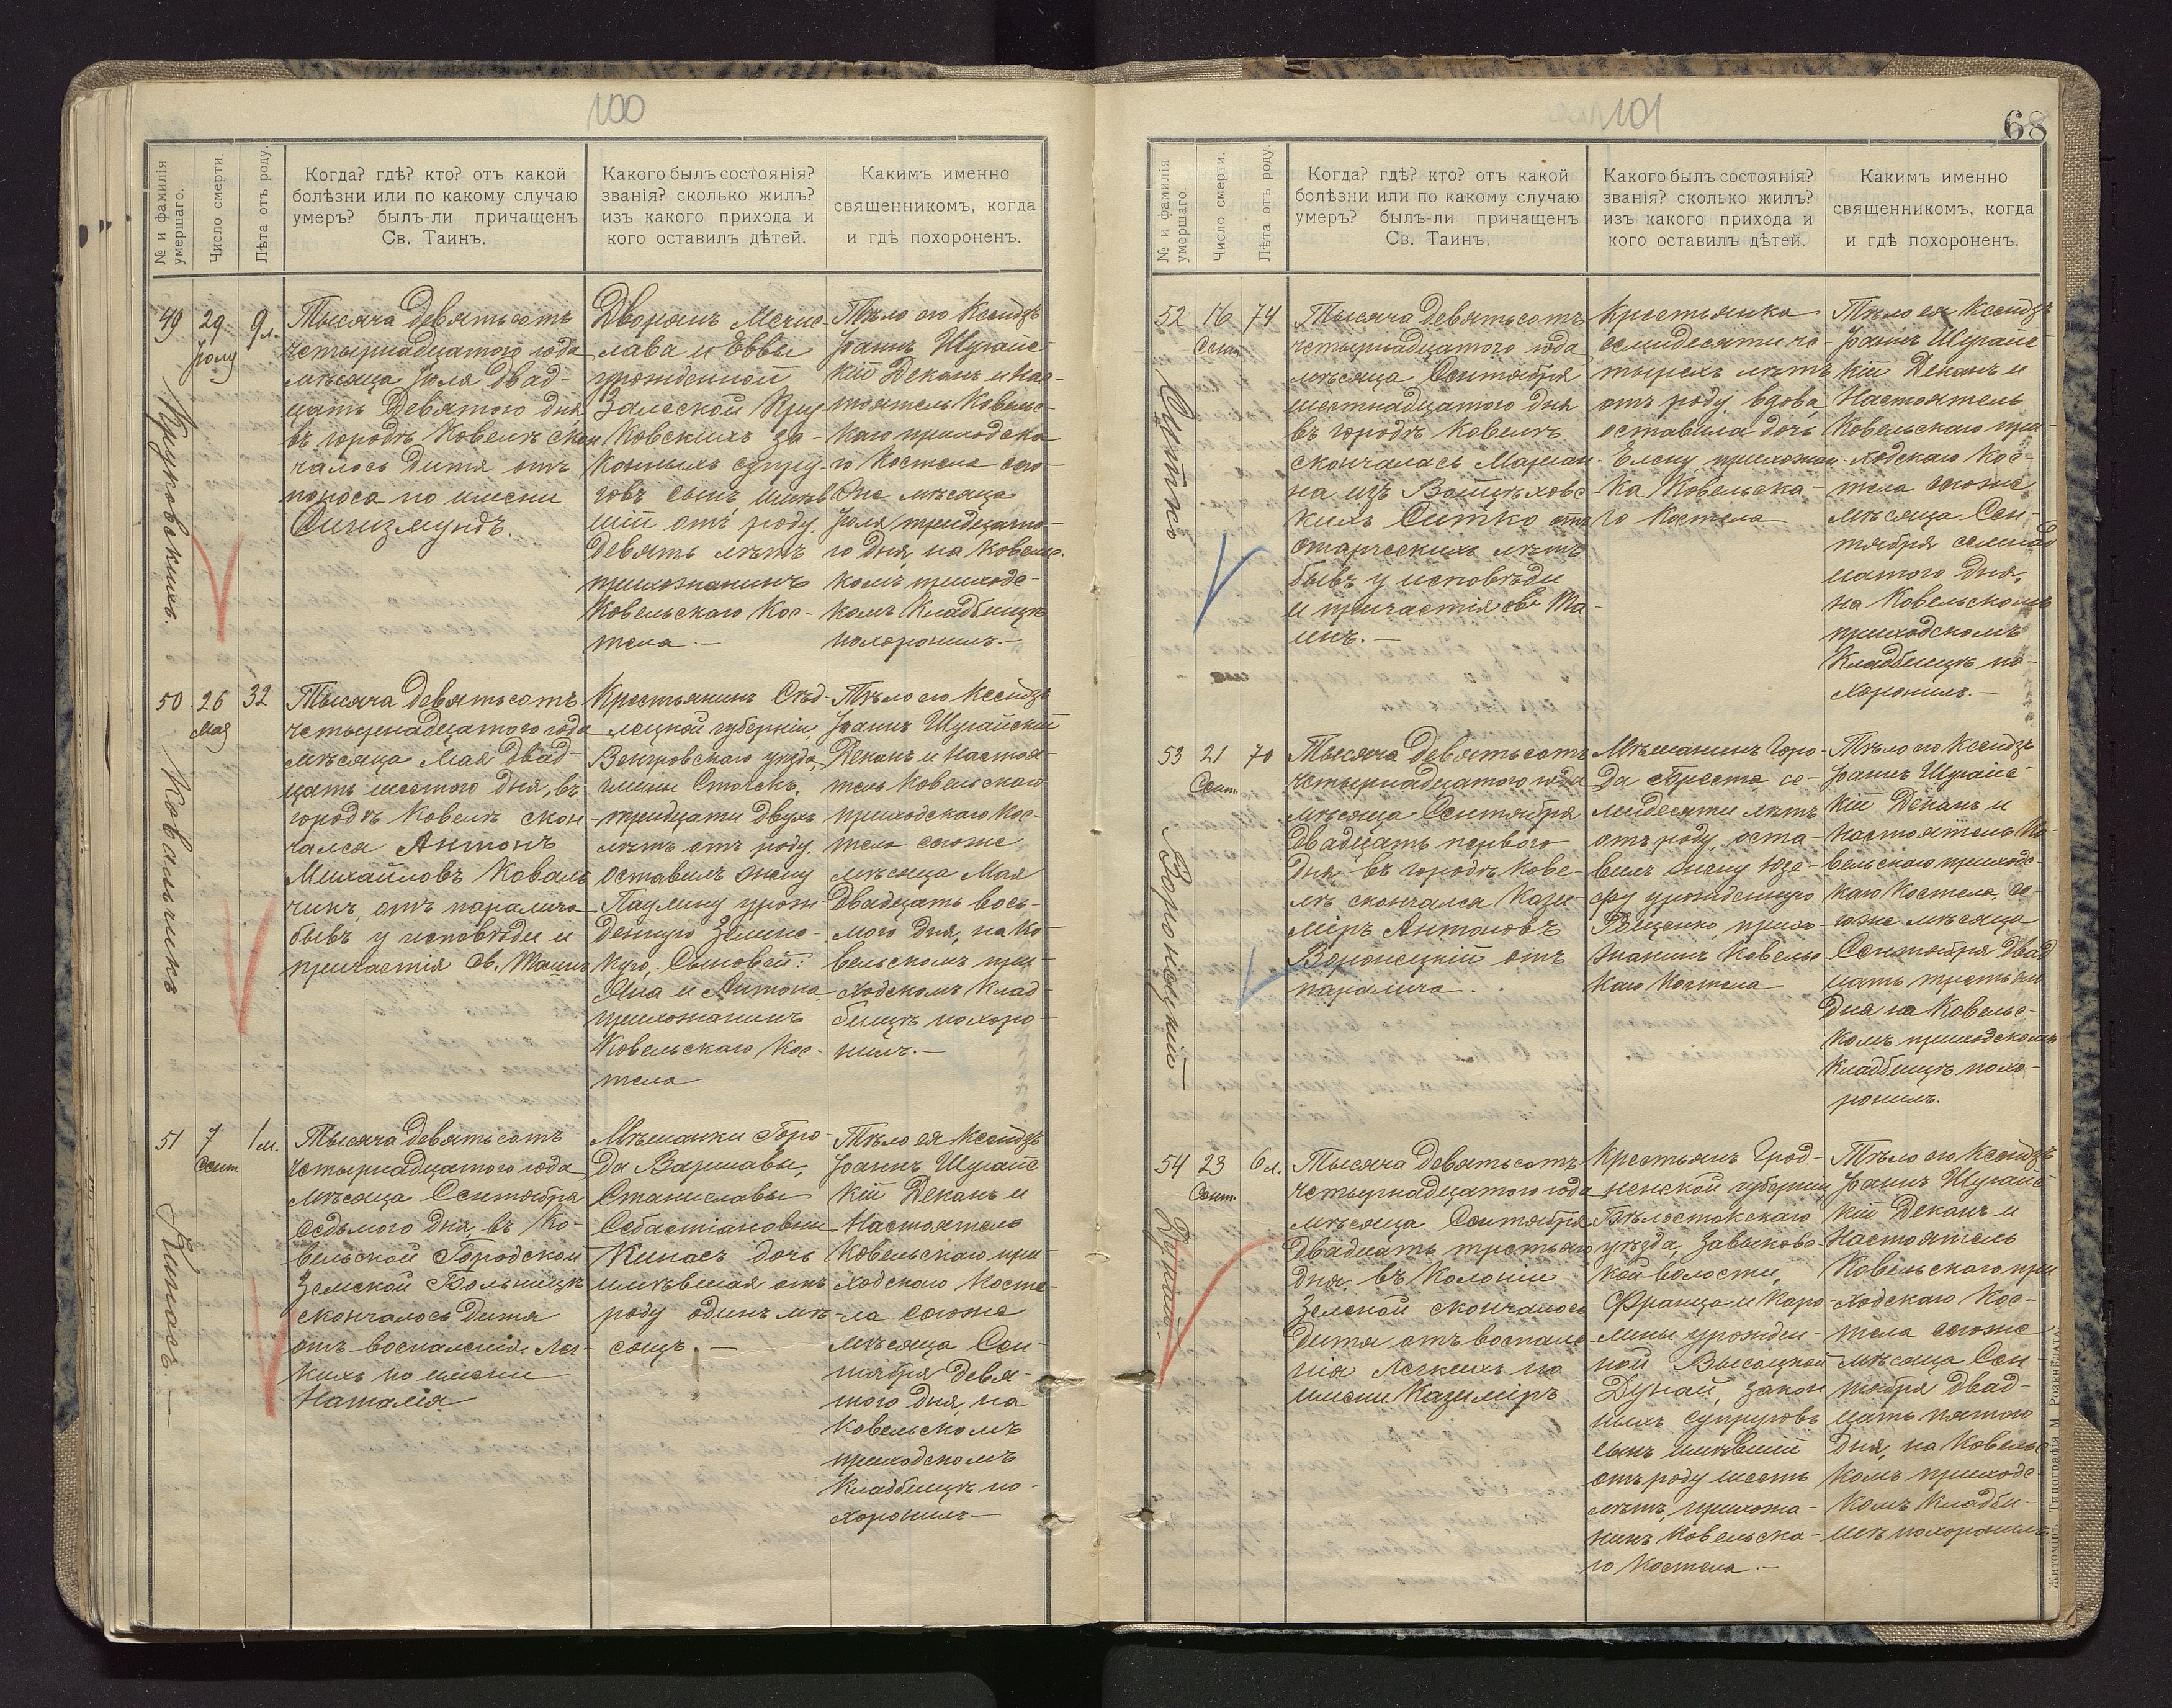 100
№ и фамилія
умершаго.
Число смерти.
Лѣта отъ роду.
Когда? гдѣ? кто? отъ какой
болѣзни или по какому случаю
умеръ? былъ-ли причащенъ
Св. Таинъ.
Какого былъ состоянія?
званія? сколько жилъ?
изъ какого прихода и
кого оставилъ дѣтей.
Какимъ именно
священникомъ, когда
и гдѣ похороненъ.
49
29
Іюля
9 л.
Круковскихъ.
Тысяча девятьсотъ
четырнадцатого года
мѣсяца Іюля двад-
цать Девятого дня
въ городѣ Ковелѣ скон
чалось дитя отъ
поноса по имени
Сигизмундъ.
Дворянъ Мечис
лава и Еввы
урожденной
Залеской Кру
ковскихъ за-
конныхъ супру-
говъ сынъ имѣв
шій отъ роду
девять лѣтъ
прихожанинъ
Ковельскаго Кос-
тела.—
Тѣло его Ксендзъ
Іоаннъ Шуранс-
кій Деканъ и Нас-
тоятель Ковельс-
каго приходска
го Костела сего
же мѣсяца
Іюля тридцато-
го дня, на Ковельс.
комъ приходс-
комъ Кладбищѣ
похоронилъ.—
50.
26
мая
32
Ковальчикъ
Тысяча девятьсотъ
четырнадцатого года
мѣсяца Мая двад-
цать шестого дня, въ
городѣ Ковелѣ скон-
чался Антонъ
Михайловъ Коваль
чикъ, отъ паралича
бывъ у исповѣди и
причастія Св. Таинъ
Крестьянинъ Сѣд-
лецкой губерніи
Венгровскаго уѣзда,
гмины Сточескъ,
тридцати двухъ
лѣтъ отъ роду.
оставилъ жену
Паулину урож
денную Зелинс-
кую, Сыновей:
Яна и Антона,
прихожанинъ
Ковельскаго Кос-
тела
Тѣло его Ксендзъ
Іоаннъ Шуранскій
Деканъ и Настоя-
тель Ковельскаго
приходскаго Кос-
тела сегоже
мѣсяца Мая
двадцать вось-
мого дня, на Ко-
вельскомъ при-
ходскомъ Клад-
бищѣ похоро-
нилъ.—
51
7
Сент.
1 м.
Кипасъ.—
Тысяча девятьсотъ
четырнадцатого года
мѣсяца Сентября
седьмого дня, въ Ко-
вельской Городской
Земской Больницѣ
скончалось дитя
отъ воспаленія Лег-
кихъ по имени
Наталія.
Мѣщанки Горо-
да Варшавы,
Станиславы
Себастіановны
Кипасъ дочь
имѣвшая отъ
роду одинъ мѣ-
сяцъ.—
Тѣло ея Ксендзъ
Іоаннъ Шуранс
кій Деканъ и
Настоятель
Ковельскаго при
ходскаго Косте-
ла сегоже
мѣсяца Сен-
тября девя-
того дня, на
Ковельскомъ
приходскомъ
Кладбищѣ по-
хоронилъ—
101
68
№ и фамилія
умершаго.
Число смерти.
Лѣта отъ роду.
Когда? гдѣ? кто? отъ какой
болѣзни или по какому случаю
умеръ? былъ-ли причащенъ
Св. Таинъ.
Какого былъ состоянія?
званія? сколько жилъ?
изъ какого прихода и
кого оставилъ дѣтей.
Какимъ именно
священникомъ, когда
и гдѣ похороненъ.
52
16
Сент.
74
Ситко
Тысяча девятьсотъ
четырнадцатого года
мѣсяца Сентября
шестнадцатого дня
въ городѣ Ковелѣ
скончалась Мариан
на изъ Войцѣховс
кихъ Ситко отъ
старческихъ лѣтъ
бывъ у исповѣди
и причастія Св. Та-
инъ.—
Крестьянка
семидесяти че-
тырехъ лѣтъ
отъ роду, вдова
оставила дочь
Елену, прихожан
ка Ковельска-
го Костела
Тѣло ея Ксендзъ
Іоаннъ Шуранс-
кій Деканъ и
Настоятель
Ковельскаго при-
ходскаго Кос-
тела сегоже
мѣсяца Сен-
тября семнад
цатого дня,
на Ковельскомъ
приходскомъ
Кладбищѣ по-
хоронилъ.—
53
21
Сент.
70
Воронецкій—
Тысяча девятьсотъ
четырнадцатого года
мѣсяца Сентября
двадцать первого
дня въ городѣ Кове-
лѣ скончался Кази
міръ Антоновъ
Воронецкій отъ
паралича.
Мѣщанинъ Горо-
да Бреста, се-
мидесяти лѣтъ
отъ роду, оста-
вилъ жену Юзе-
фу урожденную
прихо-
жанинъ Ковельс
каго Костела
Тѣло его Ксендзъ
Іоаннъ Шуранс-
кій Деканъ и
Настоятель Ко-
вельскаго приходс-
каго Костела, се-
гоже мѣсяца
Сентября двад
цать третьяго
дня на Ковельс-
комъ приходскомъ
Кладбищѣ похо-
ронилъ.
54
23
Сент.
6 л.
Дунай.
Тысяча девятьсотъ
четырнадцатого года
мѣсяца Сентября
двадцать третьяго
дня, въ Колоніи
Зеленой скончалось
дитя отъ воспале-
нія Легкихъ по
имени Казиміръ
Крестьянъ Грод-
ненской губерніи
Бѣлостокскаго
уѣзда, Завыковс-
кой волости,
Франца и Каро-
лины урожден-
ной Высоцкой
Дунай, закон
ныхъ супруговъ
сынъ имѣвшій
отъ роду шесть
лѣтъ, прихожа-
нинъ Ковельска-
го Костела.—
Тѣло его Ксендзъ
Іоаннъ Шуранс
кій Деканъ и
Настоятель
Ковельскаго при
ходскаго Кос-
тела сегоже
мѣсяца Сен-
тября двад-
цать пятого
дня, на Ковельс
комъ приходс-
комъ Кладби-
щѣ похоронилъ.
Житоміръ. Типографія М. Розенблата.